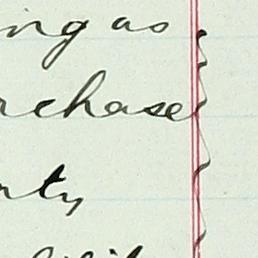 ing as
rchase
rty